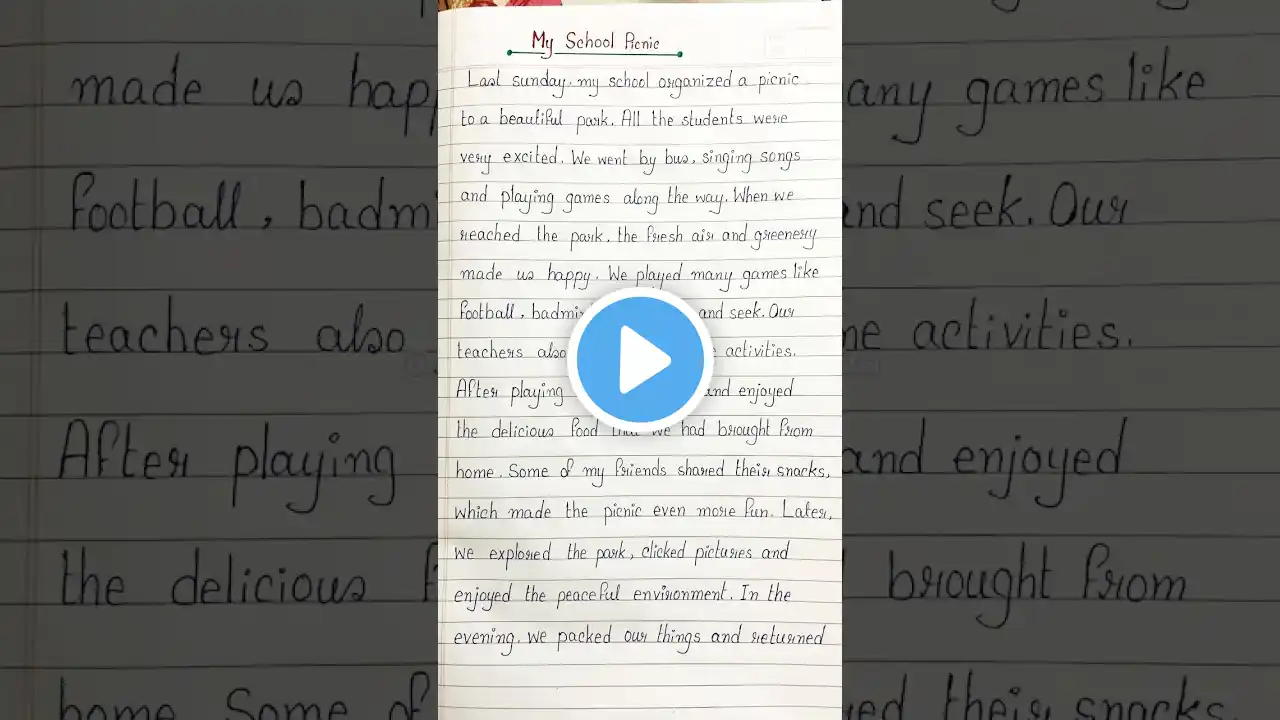 My School Picnic
Last sunday, my school organized a picnic
to a beautiful park. All the students were
very excited. We went by bus, singing songs
and playing games along the way. When we
reached the park, the fresh air and greenery
made us happy. We played many games like
football, and seek. Our
teachers also activities.
After playing and enjoyed
the delicious food that we had brought from
home. Some of my friends shared their snacks,
which made the picnic even more fun. Later,
we explored the park, clicked pictures and
enjoyed the peaceful environment. In the
evening, we packed our things and returned